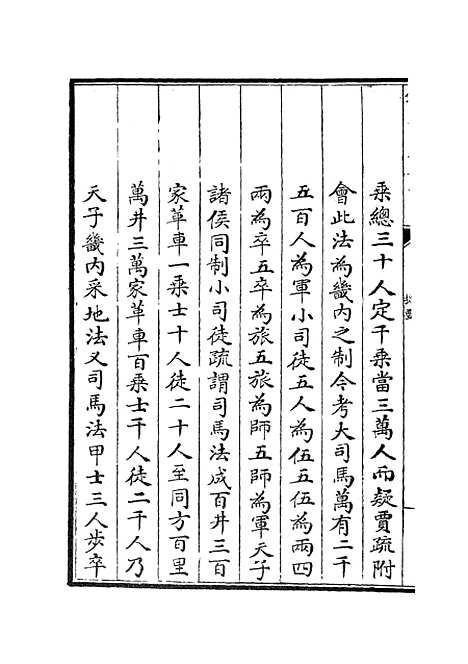 乘總三十人定千乘當三萬人而疑賈疏附
會此法為畿内之制今考大司馬萬有二千
五百人為軍小司徒五人為伍五伍為兩四
兩為卒五卒為旅五旅為師五師為軍天子
諸侯同制小司徒疏謂司馬法成百井三百
家革車一乘士十人徒二十人至同方百里
萬井三萬家革車百乘士千人徒二千人乃
天子畿内采地法又司馬法甲士三人步卒